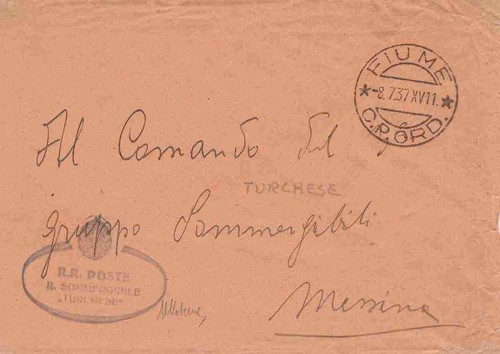 FIUME
-8.7.37.XV 11.
C.P. ORD.
Al Comando del 1°
TURCHESE
gruppo Sommergibili
Messina
R.R. POSTE
R. SOMMERGIBILE
"TURCHESE"